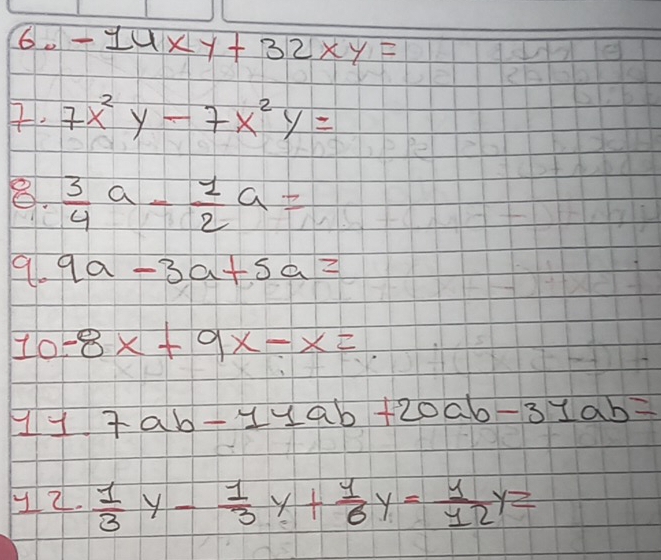 6. -14xy + 32xy =
7. 7x² y - 7x² y =
8. 3/4 a - 1/2 a =
9. 9a - 3a + 5a =
10. -8x + 9x - x =
11. 7ab - 11ab + 20ab - 31ab =
12. 1/3 y - 1/3 y + 1/6 y - 1/12 y =